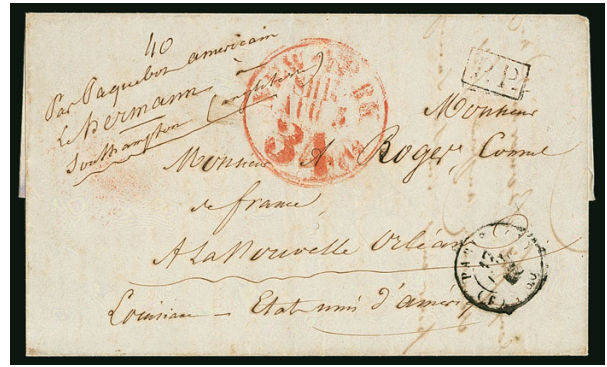 40
Par Paquebot americain
le Hermann à
Southampton (angleterre)
NEW YORK
SHIP
AUG 5
34
P.P.
Monsieur
Monsieur A Roger, Consul
de france,
A La Nouvelle Orléans
Louisiane – Etats unis d'améri
PARIS